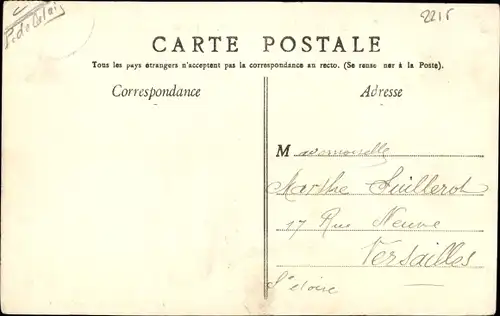 P. de Calais
2215
CARTE POSTALE
Tous les pays étrangers n'acceptent pas la correspondance au recto. (Se rense ner à la Poste).
Correspondance
Adresse
Mademoiselle
Marthe Guillerot
17 Rue Neuve
Versailles